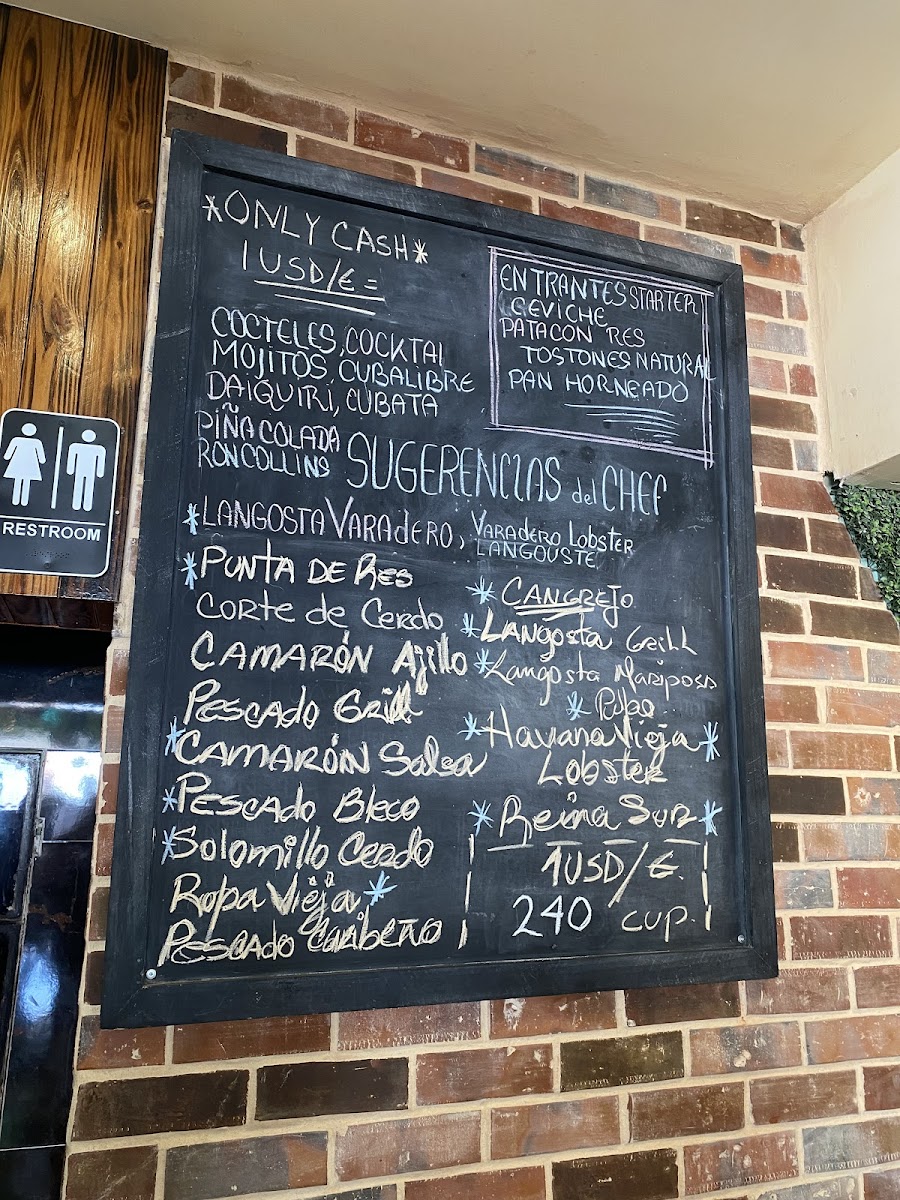 *ONLY CASH*
1USD/€=
COCTELES, COCKTAI
MOJITOS, CUBALIBRE
DAIQUIRÍ, CUBATA
PIÑA COLADA
RON COLLINS
ENTRANTES STARTER
CEVICHE
PATACON RES
TOSTONES NATURAL
PAN HORNEADO
SUGERENCIAS del CHEF
*LANGOSTA VARADERO, VARADERO LOBSTER
LANGOUSTE
*PUNTA DE RES
CORTE de CERDO
CAMARÓN AJILLO
PESCADO GRILL
*CAMARÓN SALSA
*PESCADO
*Solomillo Cerdo
Ropa Vieja*
PESCADO CARIBEÑO
*CANGREJO
*LANGOSTA GRILL
*Langosta Mariposa
*
*Havana Vieja*
LOBSTER
*Reina Sur*
1USD/€.
240 CUP.
RESTROOM